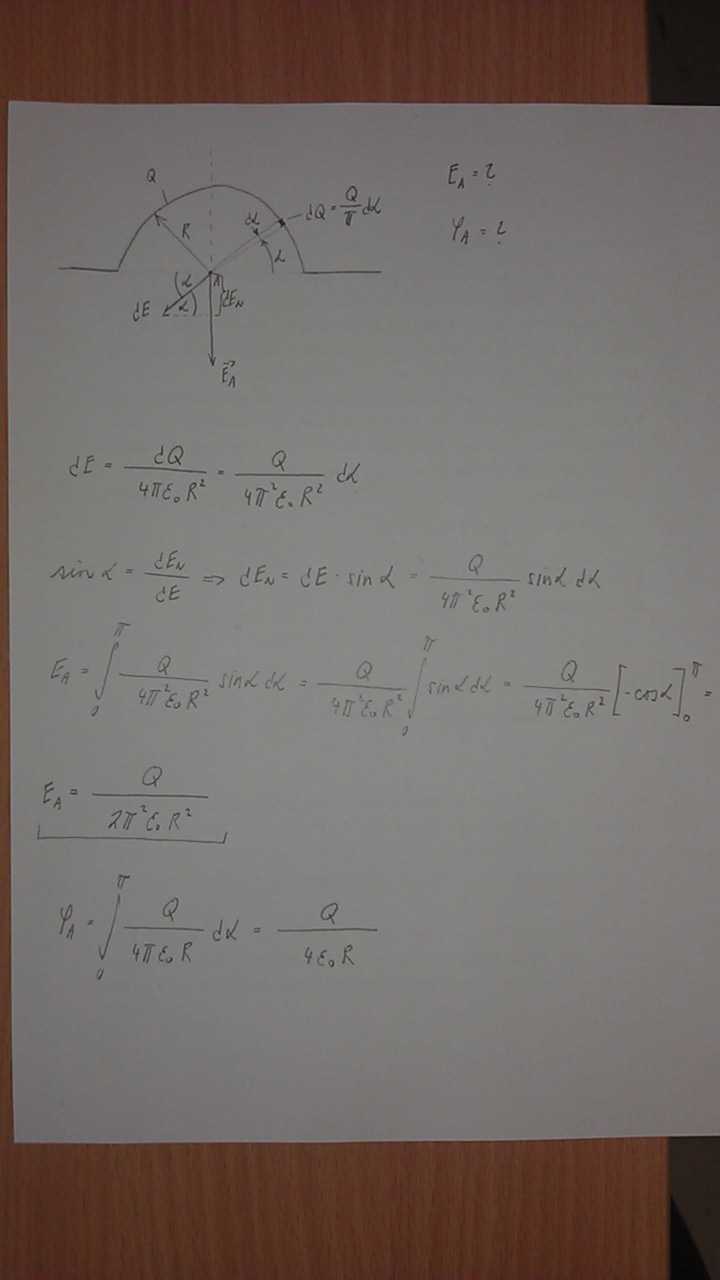 Q
R
dα
dQ = Q/π dα
α
A
α
α
dE
dE_N
E⃗_A
E_A = ?
φ_A = ?
dE = dQ/(4πε₀R²) = Q/(4π²ε₀R²) dα
sin α = dE_N/dE ⇒ dE_N = dE · sin α = Q/(4π²ε₀R²) sin α dα
E_A = ∫₀^π Q/(4π²ε₀R²) sin α dα = Q/(4π²ε₀R²) ∫₀^π sin α dα = Q/(4π²ε₀R²) [-cos α]₀^π =
E_A = Q/(2π²ε₀R²)
φ_A = ∫₀^π Q/(4πε₀R) dα = Q/(4ε₀R)